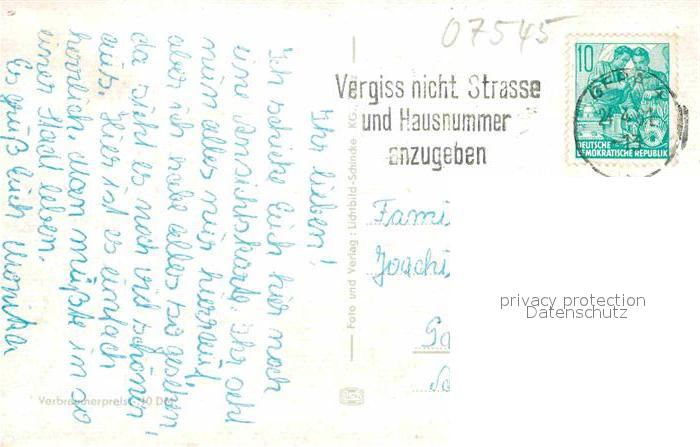 07545
10
Vergiss nicht Strasse
und Hausnummer
anzugeben
GERA
DEUTSCHE
DEMOKRATISCHE REPUBLIK
Ihr lieben!
Ich schicke Euch hier noch
eine Ansichtskarte. Ihr seht
nun alles nur hierauf,
aber ich habe alles so gesehen,
da sieht es noch viel schöner
aus. Hier ist es einfach
herrlich. Man müßte in so
einer Stadt leben.
Es grüßt Euch Monika
Foto und Verlag: Lichtbild-Schincke KG.,
Fami
Joachi
privacy protection
Datenschutz
Verbraucherpreis